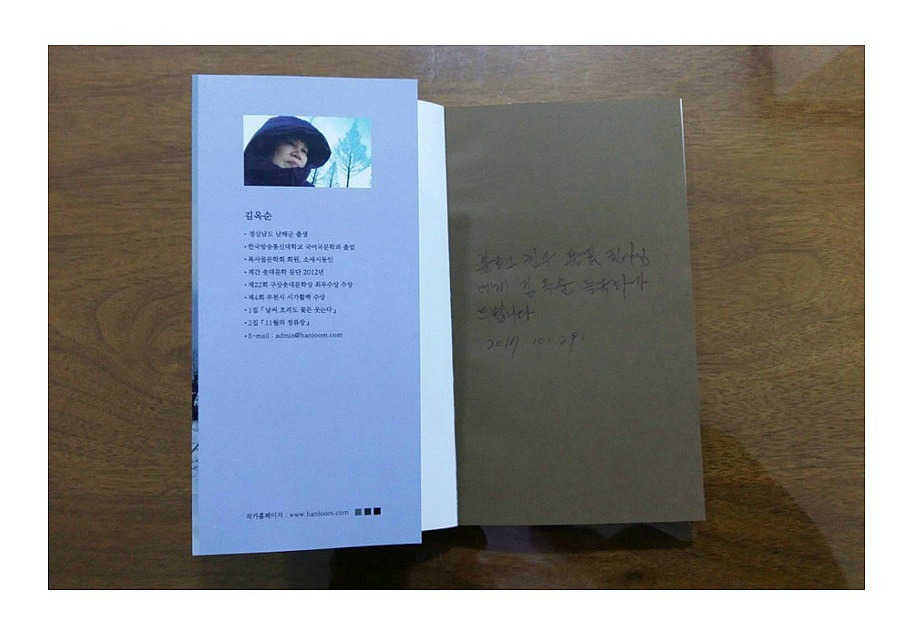 김옥순
• 경상남도 남해군 출생
• 한국방송통신대학교 국어국문학과 졸업
• 복사골문학회 회원, 소새시동인
• 계간 솟대문학 등단 2012년
• 제22회 구상솟대문학상 최우수상 수상
• 제4회 부천시 시가활짝 수상
• 1집 『날씨 흐려도 꽃은 웃는다』
• 2집 『11월의 정류장』
• E-mail : admin@hanjoom.com
작가홈페이지 : www.hanjoom.com
에게 김옥순
드립니다
10. 29.